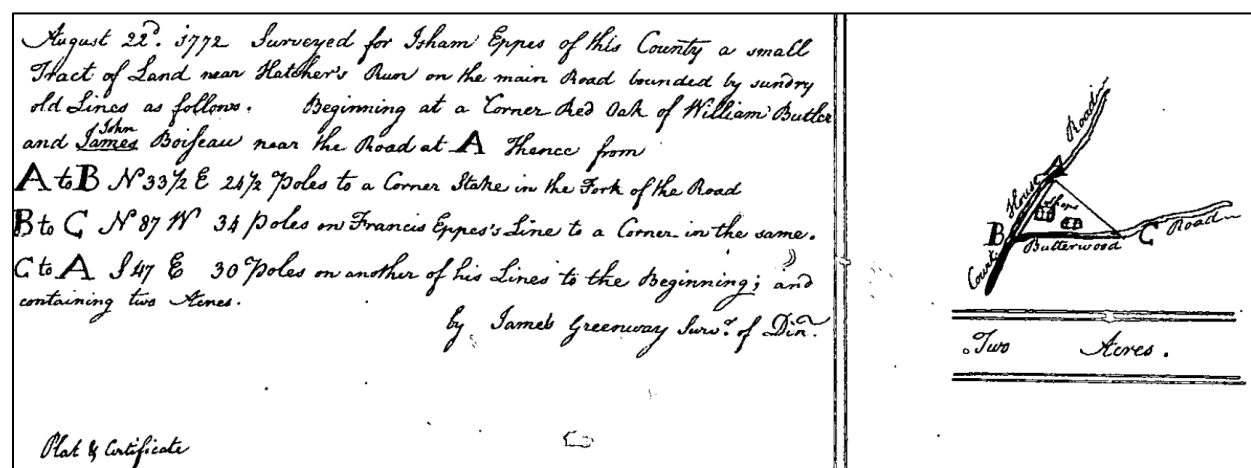 August 22d. 1772 Surveyed for Isham Eppes of this County a small
Tract of Land near Hatcher's Run on the main Road bounded by sundry
old Lines as follows. Beginning at a Corner Red Oak of William Butler
John
and James Boiseau near the Road at A Thence from
A to B N 33 1/2 E 24 1/2 Poles to a Corner Stake in the Fork of the Road
B to C N 87 W 34 Poles on Francis Eppes's Line to a Corner in the same.
C to A S 47 E 30 Poles on another of his Lines to the Beginning; and
containing two Acres.
by James Greenway Survr. of Din.
Plat & Certificate
Road
A
House
B
Court
Butterwood
C
Road
Two Acres.